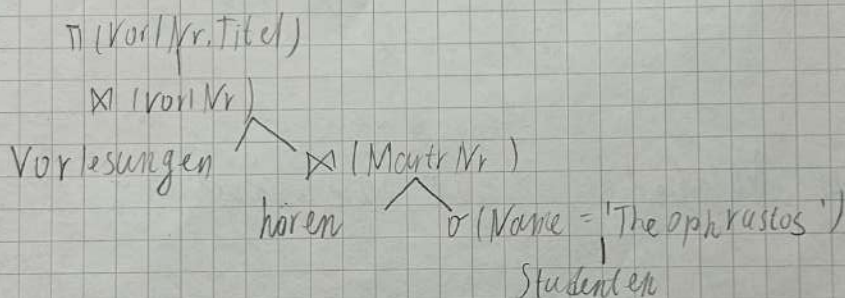 π (VorlNr, Titel)
⋈ (VorlNr)
Vorlesungen ⋈ (MartrNr)
hören σ (Name = 'Theophrastos')
Studenten